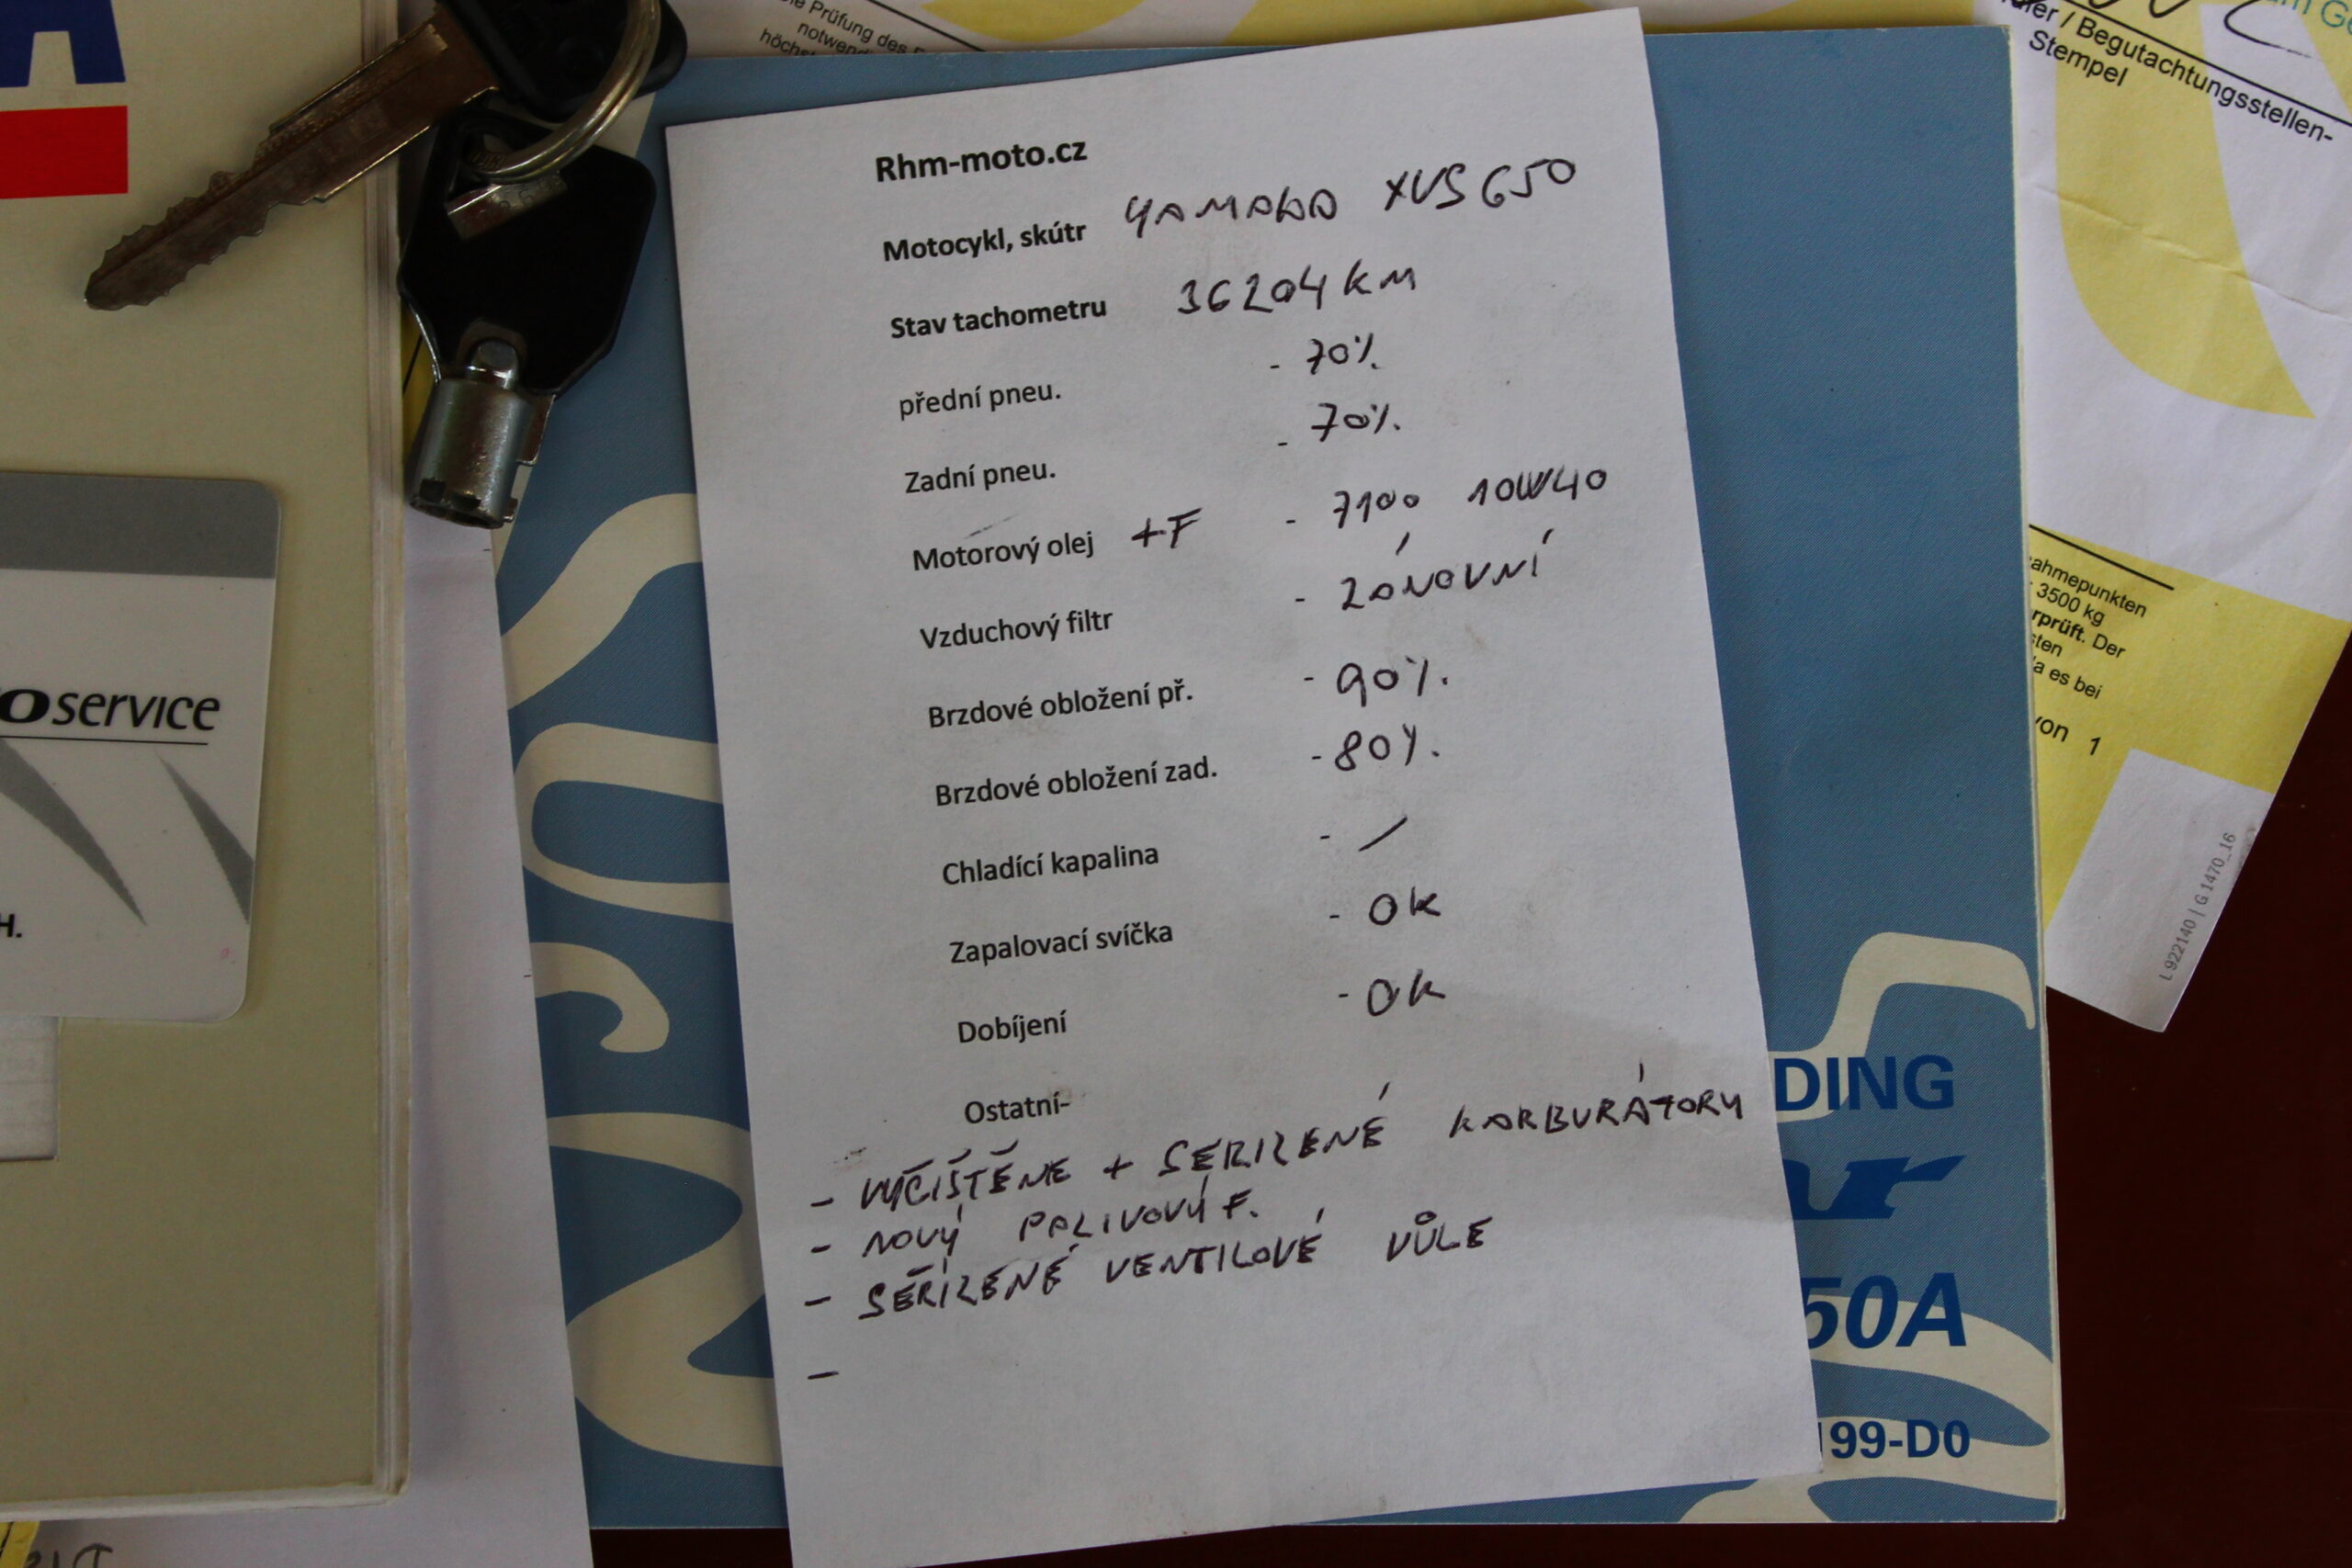 Rhm-moto.cz
Motocykl, skútr YAMAHA XVS 650
Stav tachometru 36204 KM
přední pneu. - 70%.
Zadní pneu. - 70%.
Motorový olej +F - 7100 10W40
Vzduchový filtr - ZÁNOVNÍ
Brzdové obložení př. - 90%.
Brzdové obložení zad. - 80%.
Chladící kapalina - /
Zapalovací svíčka - OK
Dobíjení - OK
Ostatní-
- VYČIŠTĚNE + SEŘIZENÉ KARBURÁTORY
- NOVÝ PALIVOVÝ F.
- SEŘIZENÉ VENTILOVÉ VŮLE
-
Prüfung des
/ Begutachtungsstellen-
Stempel
3500 kg
Der
es bei
von 1
L 922140 | G 1470_16
service
H.
DING
50A
199-D0